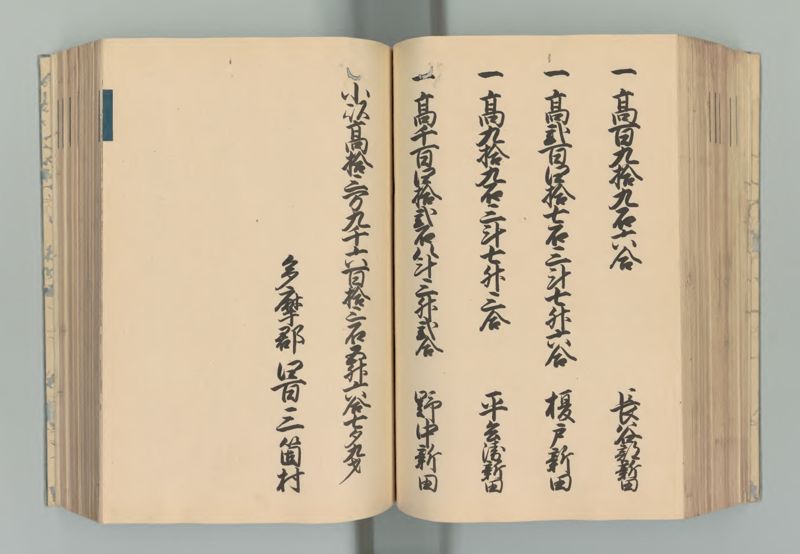 一 高百九拾九石六合 長谷部新田
一 高弐百四拾七石三斗七升六合 榎戸新田
一 高九拾九石三斗七升三合 平兵衛新田
一 高千百四拾弐石八斗三升弐合 野中新田
小以高拾三万九千六百拾三石五升六合七夕九才
多摩郡四百三箇村